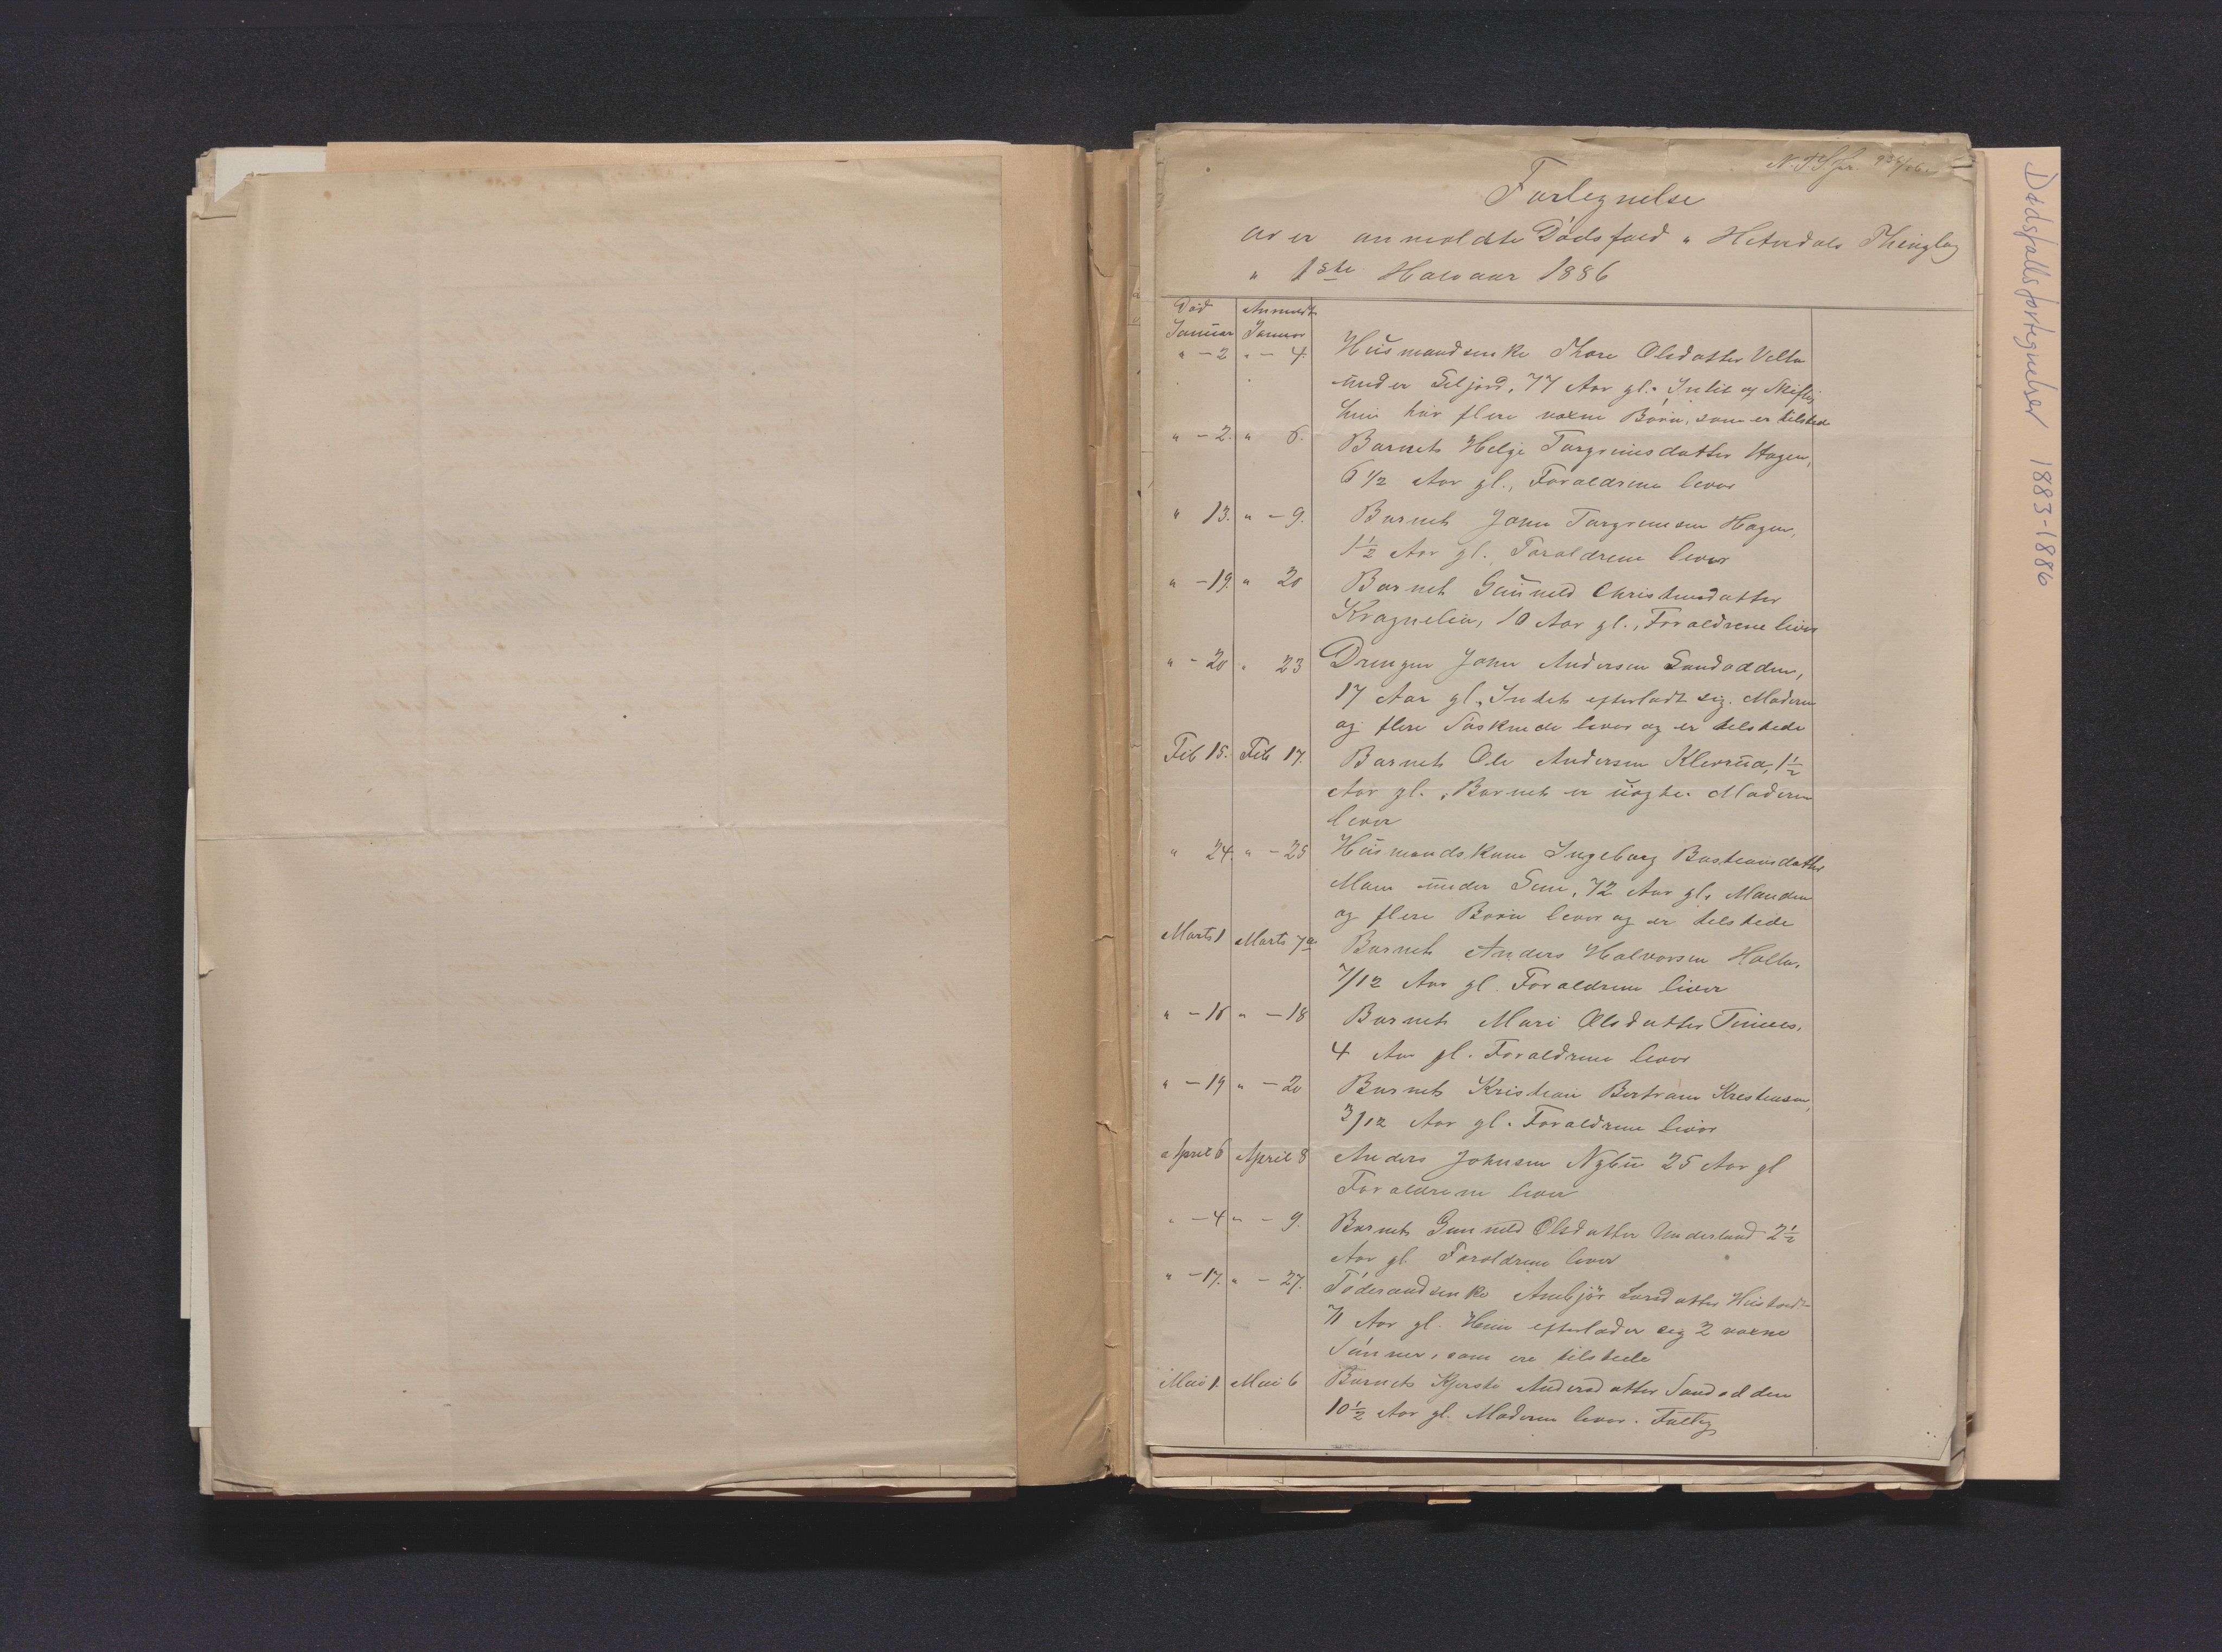 Fortegnelse
over anmeldte Dødsfald i Hiterdals Thinglag
i 1ste Halvaar 1886
Død Anmeldt
Januar Januar
" - 2 " - 4. Husmandsenke Thore Olsdatter Velta
under Seljord, 77 Aar gl. Intet og Skifte,
hun har flere voxne Børn, som er tilstede
" - 2. " 6. Barnet Helge Torgrimsdatter Hagen,
6 1/2 Aar gl., Forældrene lever
" 13. " - 9. Barnet John Torgrimsen Hagen,
1 1/2 Aar gl. Forældrene lever
" - 19. " 20 Barnet Gunnild Christensdatter
Kragnelia, 10 Aar gl., Forældrene lever
" - 20 " 23 Drengen John Andersen Sandodden,
17 Aar gl. Intet efterladt sig. Moderen
og flere Søskende lever og er tilstede
Feb 15. Feb 17. Barnet Ole Andersen Klevrua, 1 1/2
Aar gl., Barnet er uægte. Moderen
lever
" 24. " - 25 Husmandskone Ingeborg Bastiansdatter
Moen under Sem, 72 Aar gl. Manden
og flere Børn lever og er tilstede
Marts 1 Marts 7de Barnet Anders Halvorsen Holta.
7/12 Aar gl. Forældrene lever
" - 16 " - 18 Barnet Mari Olsdatter Tinnes.
4 Aar gl. Forældrene lever
" - 19 " - 20 Barnet Kristian Bertram Kristensen,
3/12 Aar gl. Forældrene lever
April 6 April 8 Anders Johnsen Nybu 25 Aar gl
Forældrene lever
" - 4 " - 9. Barnet Gunnild Olsdatter Underlund 2 1/2
Aar gl Forældrene lever
" - 17. " - 27. Føderaadsenke Anbjør Larsdatter
71 Aar gl. Hun efterlader sig 2 voxne
Sønner, som ere tilstede
Mai 1. Mai 6 Barnet Kjersti Andersdatter Sandodden
10 1/2 Aar gl. Moderen lever. Fattig
Dødsfallsfortegnelser 1883-1886